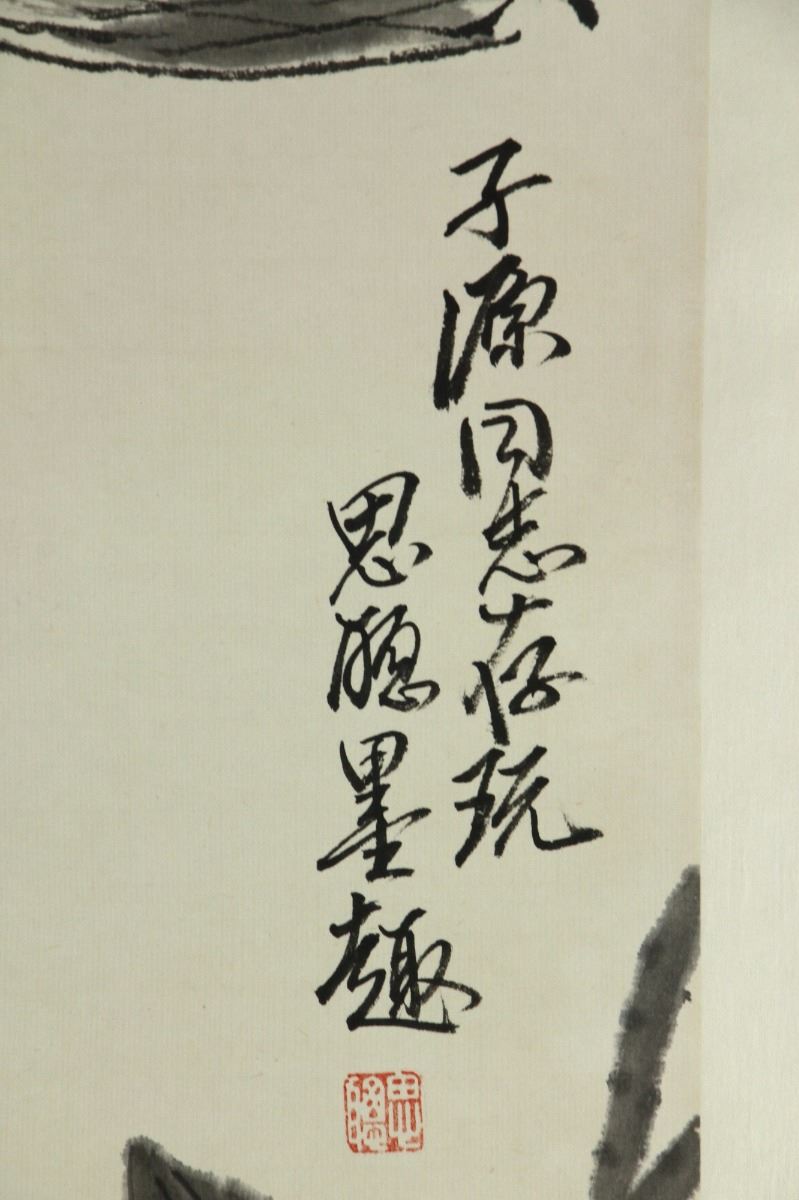 子源同志存玩
思聰墨趣